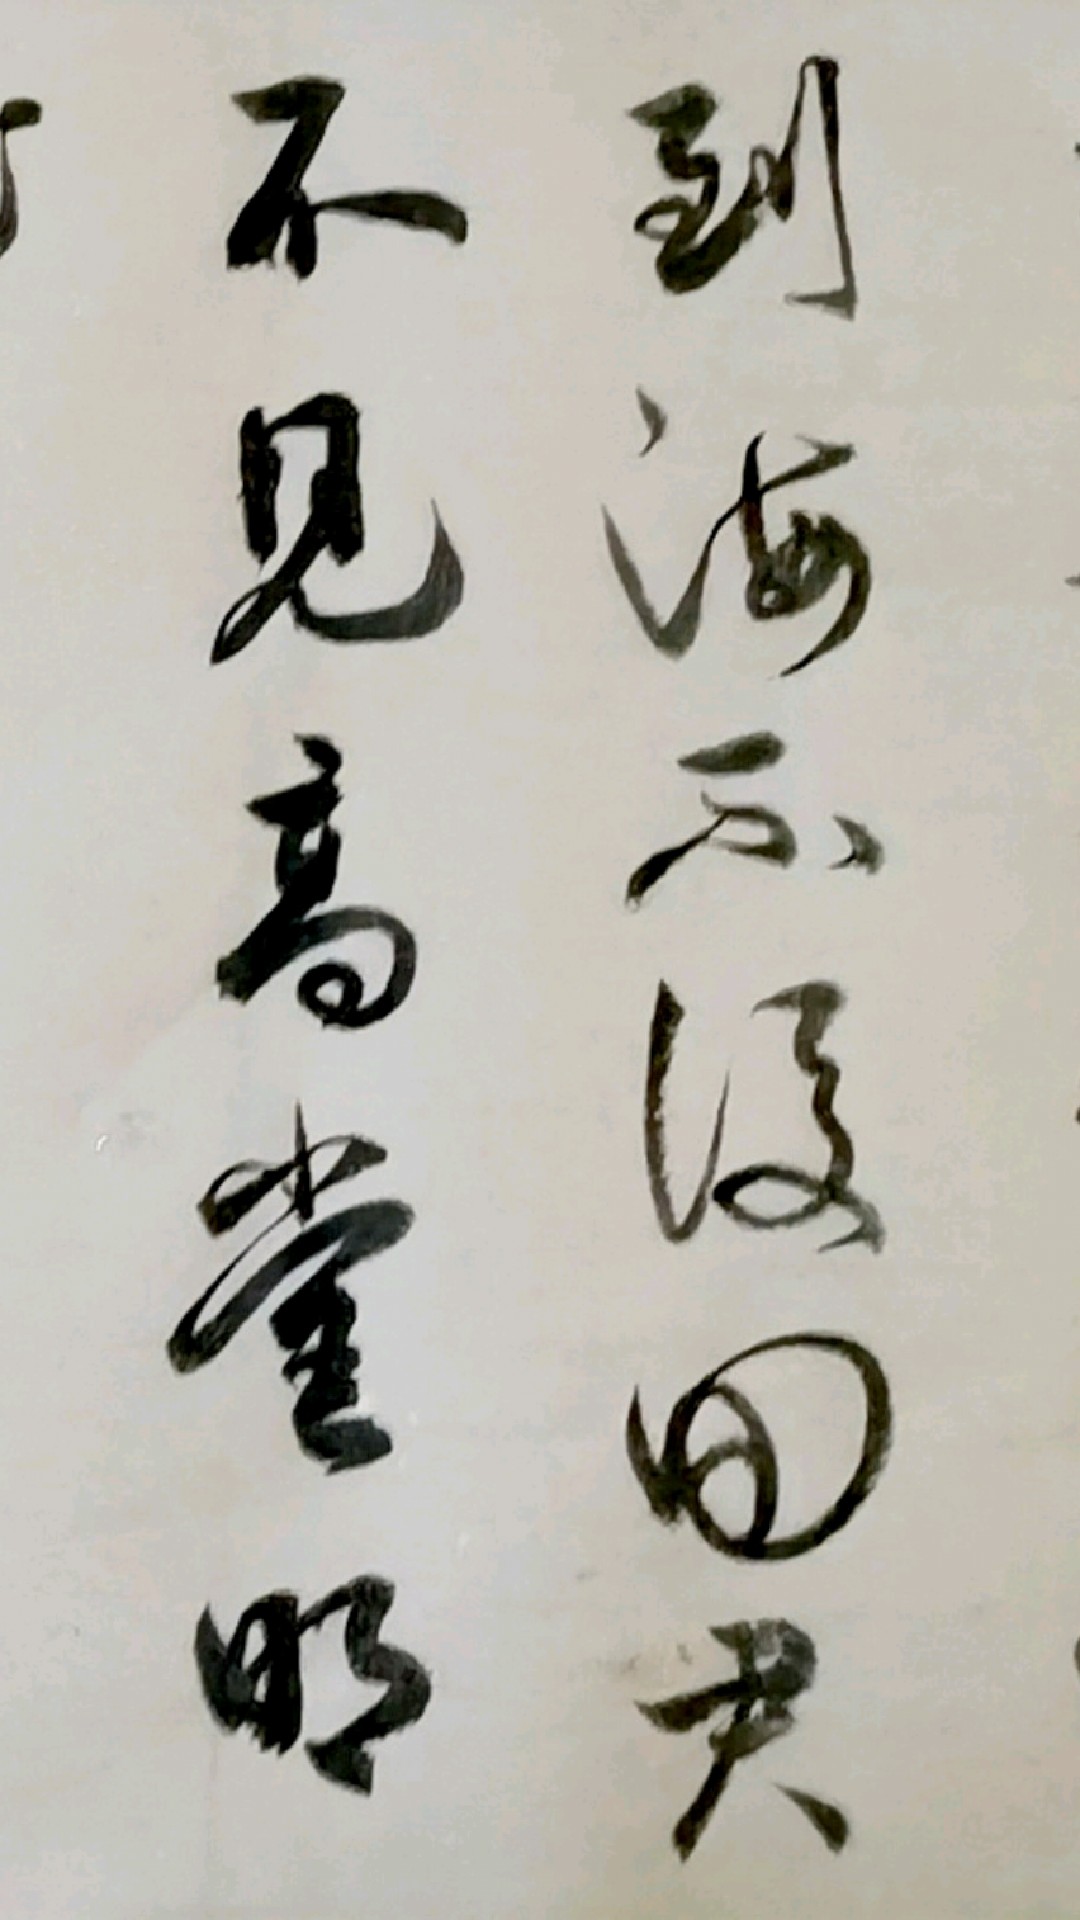 到海不復回君
不见高堂明